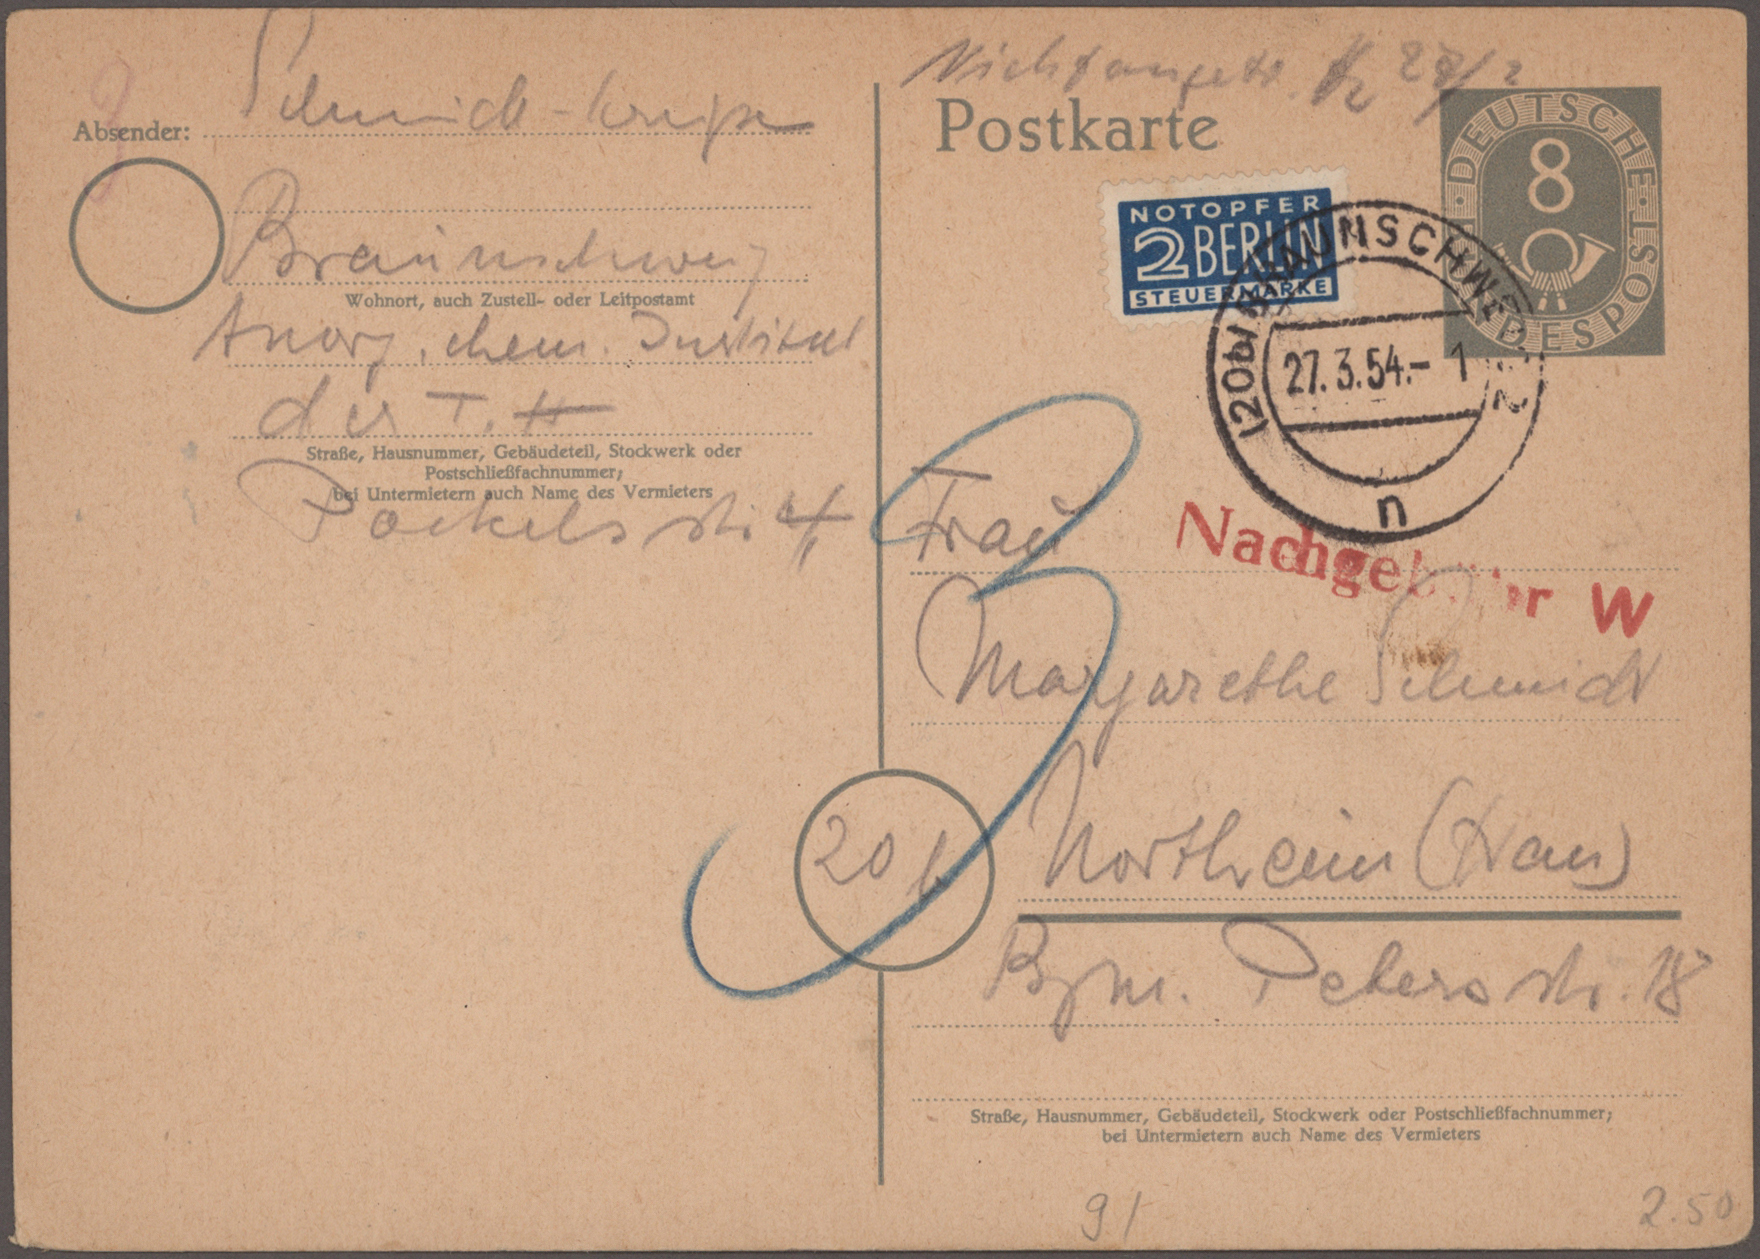 Absender:
Braunschweig
Wohnort, auch Zustell- oder Leitpostamt
Anorg. chem. Institut
der T. H
Straße, Hausnummer, Gebäudeteil, Stockwerk oder
Postschließfachnummer;
bei Untermietern auch Name des Vermieters
Pockelsstr. 4
Postkarte
DEUTSCHE BUNDESPOST
8
NOTOPFER
2 BERLIN
STEUERMARKE
(20b) BRAUNSCHWEIG 2
27.3.54.- 1
n
Nachgebühr W
3
Frau
Margarethe Schmidt
20b
Northeim (Han)
Bgm. Petersstr. 18
Straße, Hausnummer, Gebäudeteil, Stockwerk oder Postschließfachnummer;
bei Untermietern auch Name des Vermieters
91
2.50